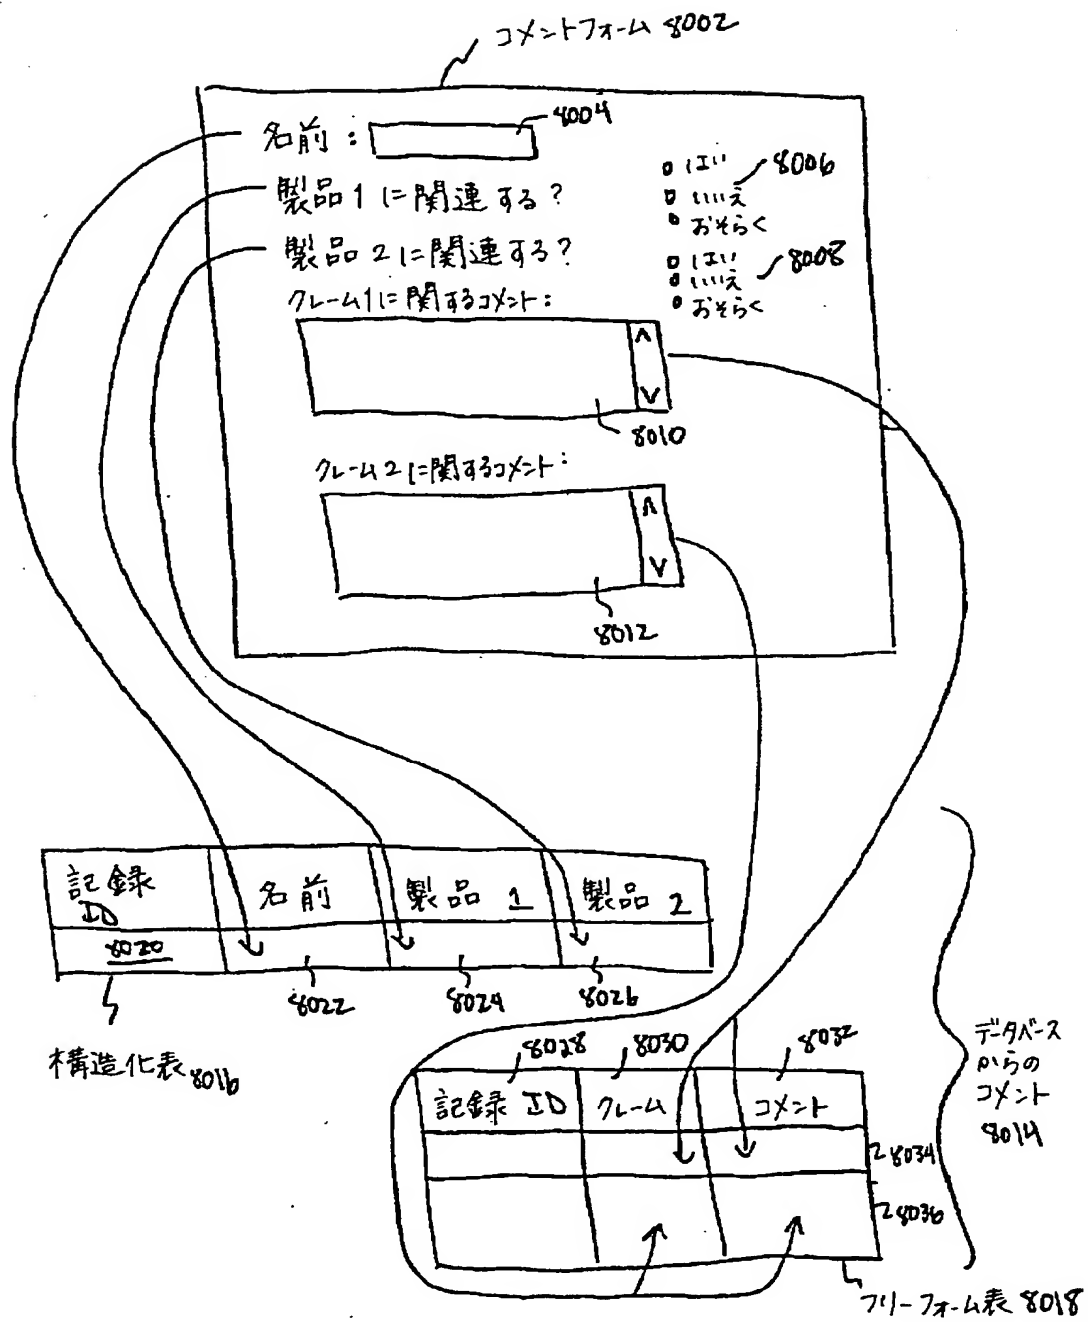 コメントフォーム 8002
名前：
8004
製品1に関連する？
はい
いいえ
おそらく
8006
製品2に関連する？
はい
いいえ
おそらく
8008
クレーム1に関するコメント：
∧
∨
8010
クレーム2に関するコメント：
∧
∨
8012
記録 ID
名前
製品 1
製品 2
8020
8022
8024
8026
構造化表 8016
8028
8030
8032
記録 ID
クレーム
コメント
8034
8036
データベース
からの
コメント
8014
フリーフォーム表 8018